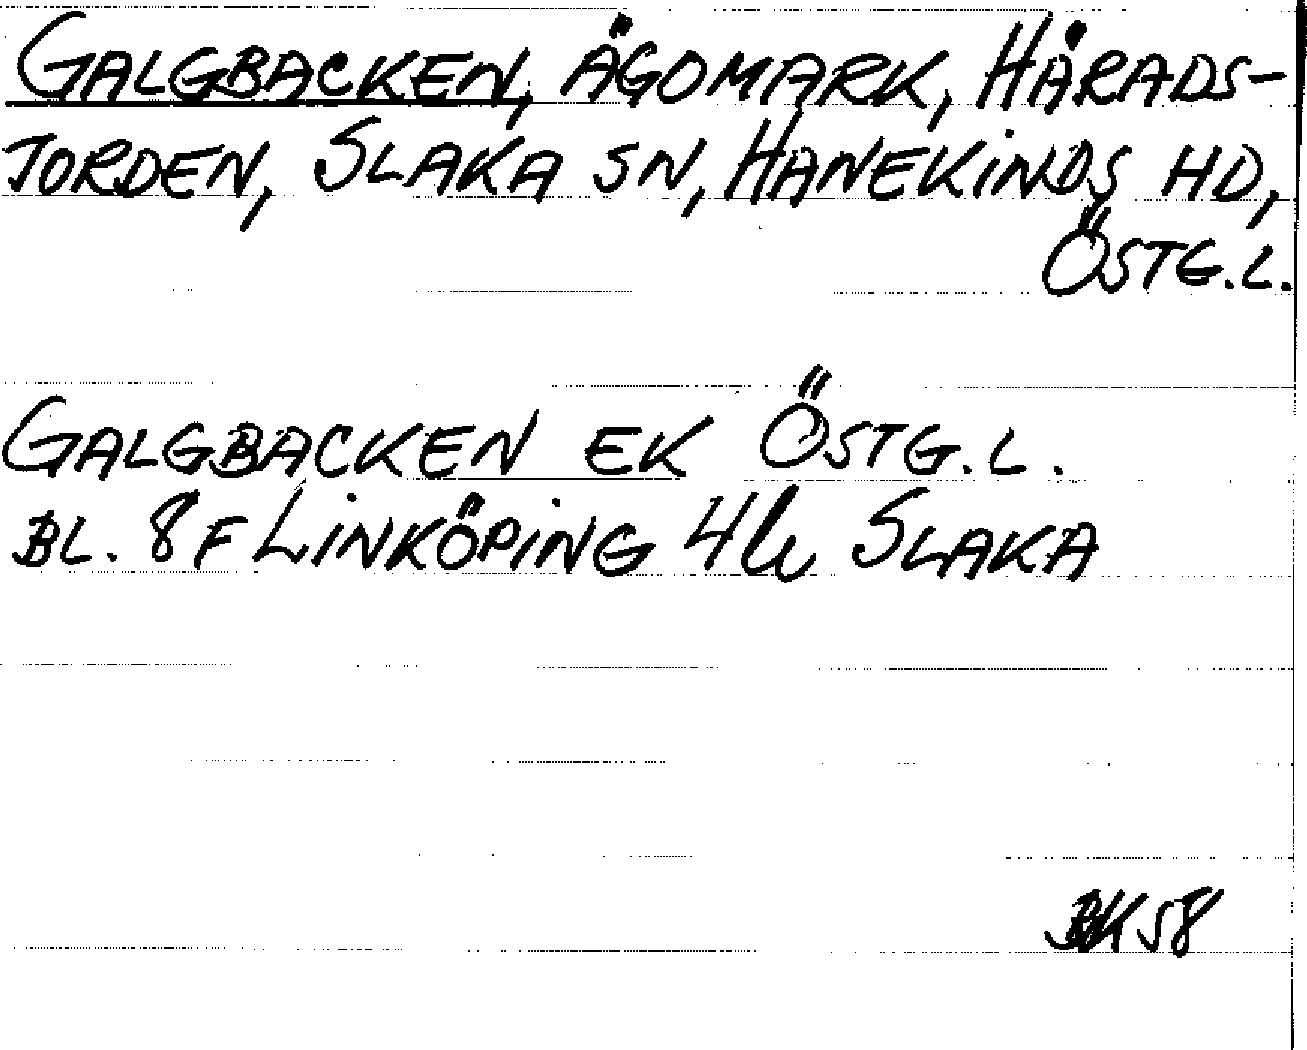 GALGBACKEN, ÄGOMARK, HÄRADS-
JORDEN, SLAKA SN, HANEKINDS HD,
ÖSTG.L.
GALGBACKEN EK ÖSTG.L.
BL. 8F LINKÖPING SLAKA
BK58